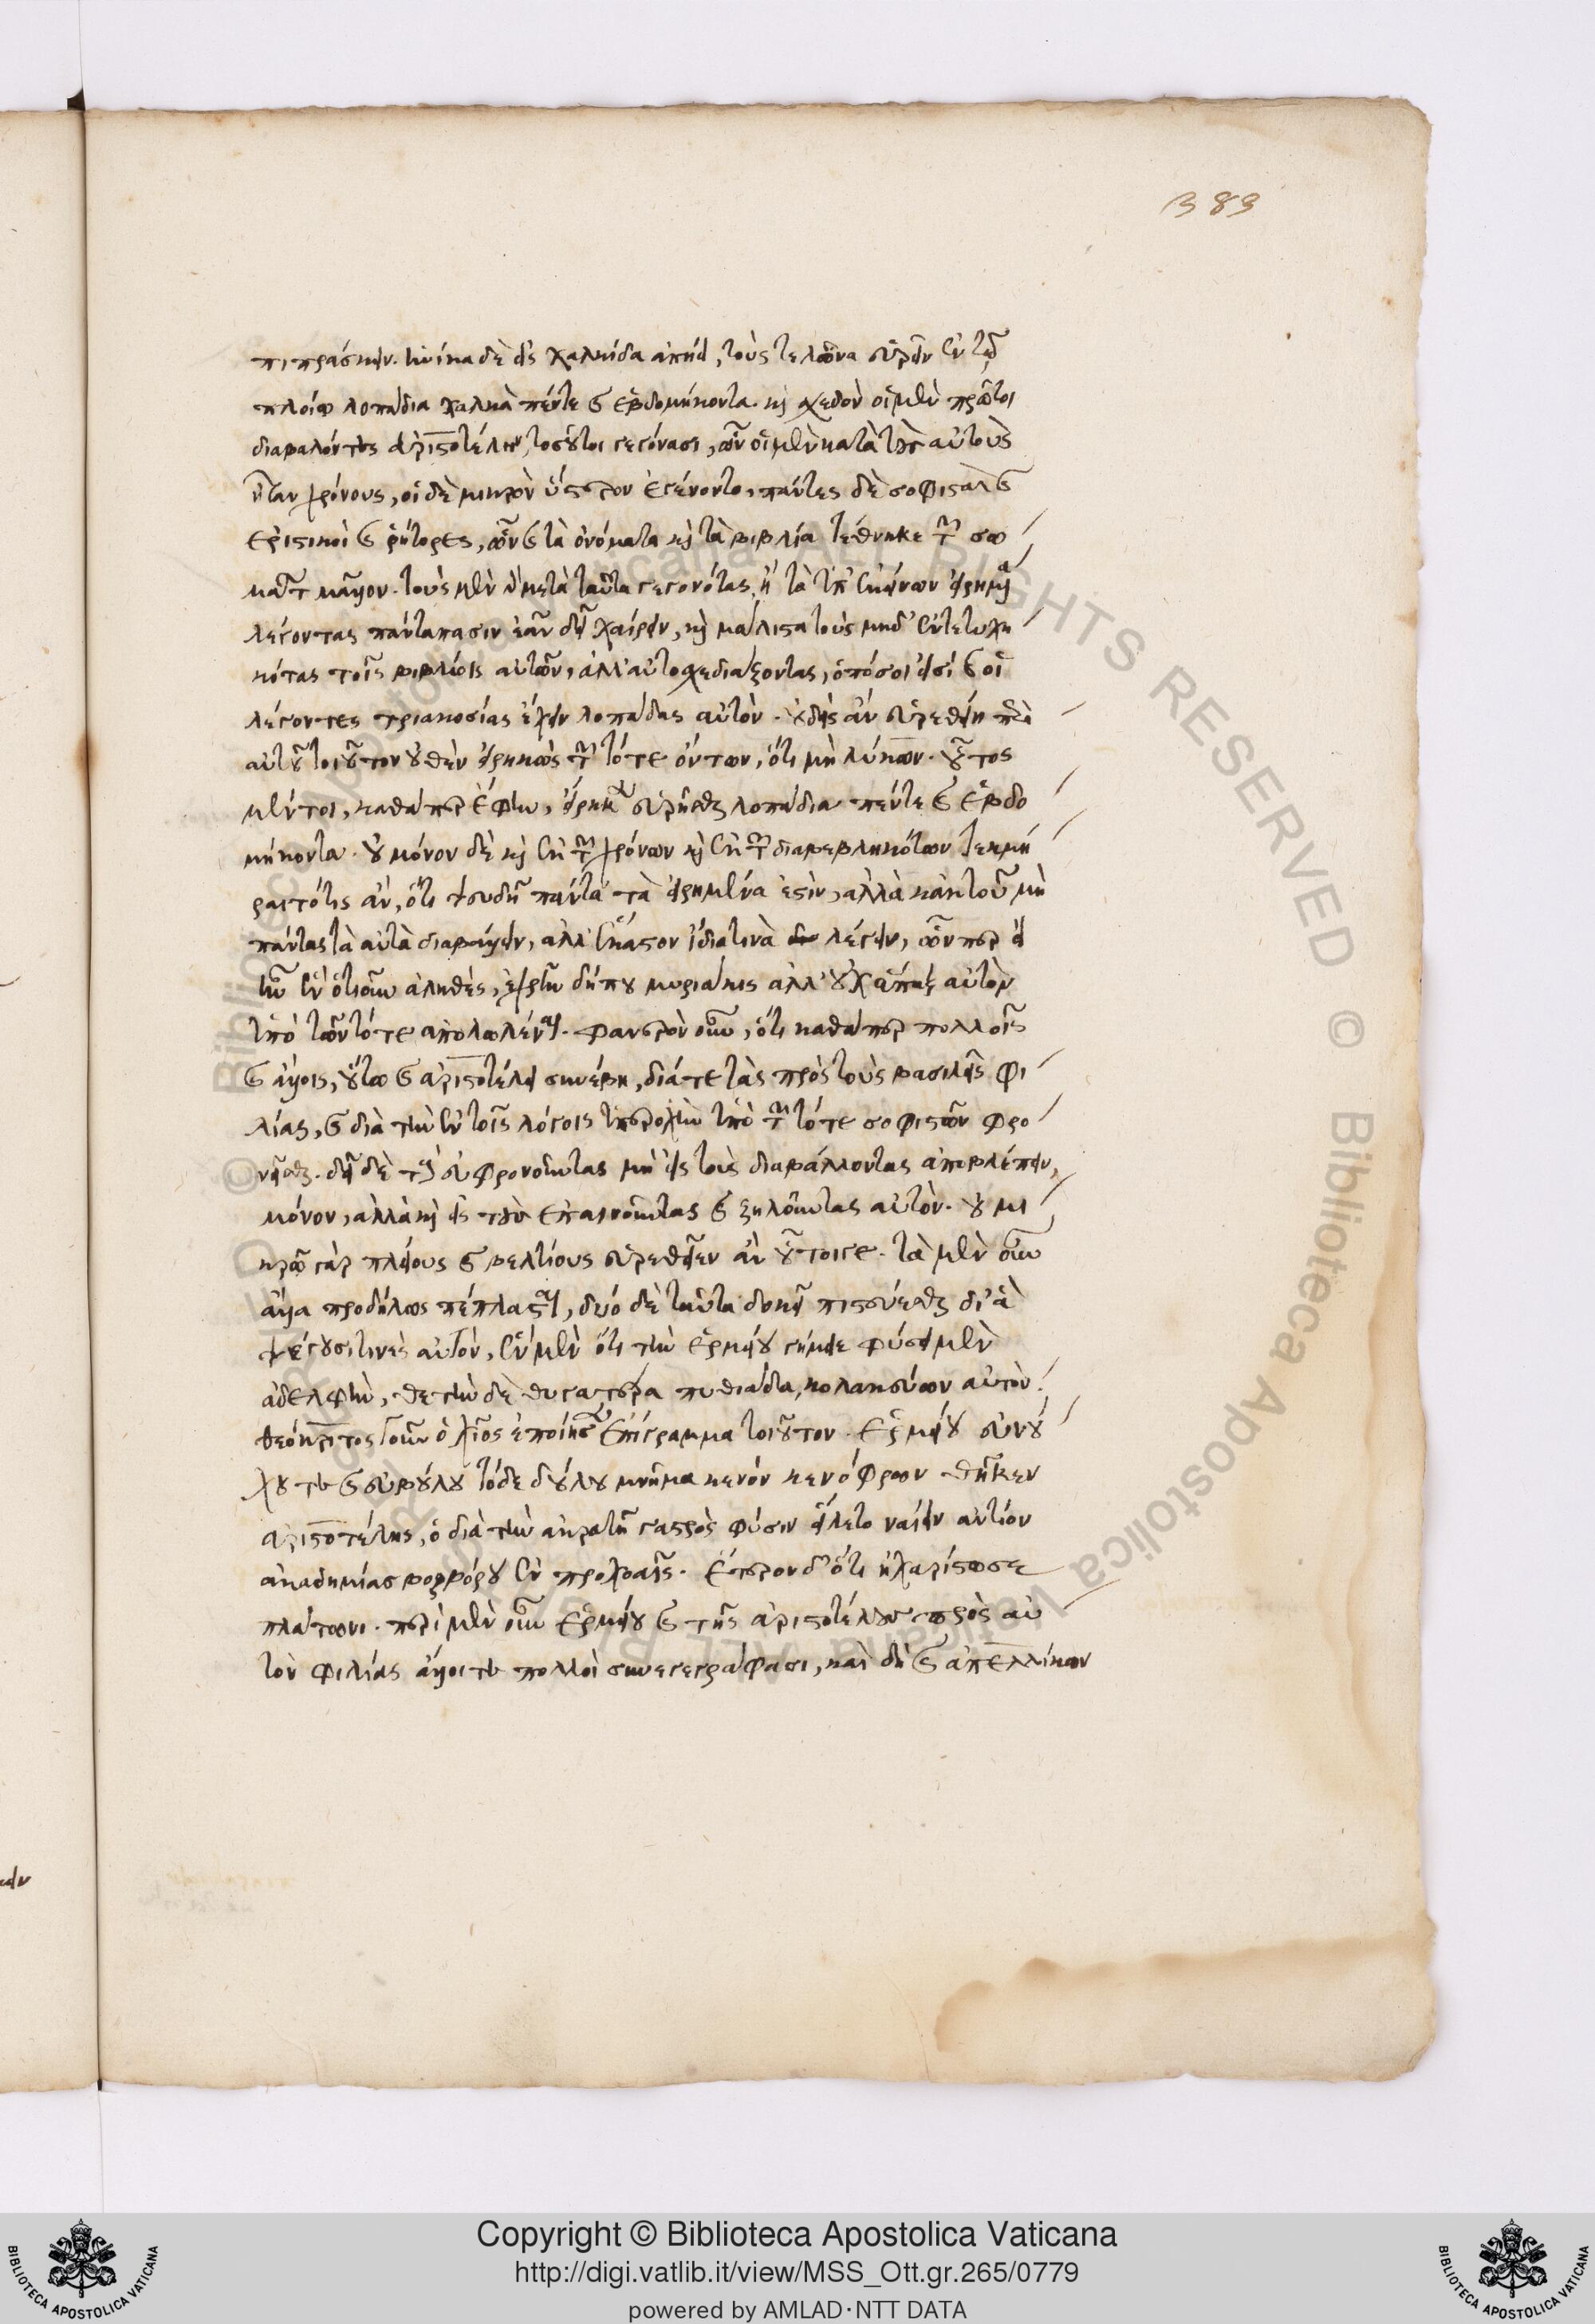 383
πιπράσκειν. ἡνίκα δὲ εἰς χαλκίδα ἀπῄει, τοὺς τελώνας εὑρεῖν ἐν τῷ
πλοίῳ λοπάδια χαλκᾶ πέντε καὶ ἑβδομήκοντα. καὶ σχεδὸν οἱ μὲν πρῶτοι
διαβαλόντες ἀριστοτέλην, τοσοῦτοι γεγόνασι, ὧν οἱ μὲν κατὰ τοὺς αὐτοὺς
ἦσαν χρόνους, οἱ δὲ μικρὸν ὕστερον ἐγένοντο, πάντες δὲ σοφισταὶ καὶ
ἐριστικοὶ καὶ ῥήτορες, ὧν καὶ τὰ ὀνόματα καὶ τὰ βιβλία τέθνηκε τῶν σω
μάτων μᾶλλον. τοὺς μὲν μετὰ ταῦτα γεγονότας, τὰ ὑπ' ἐκείνων εἰρημένα
λέγοντας παντάπασιν ἐᾶν δεῖ χαίρειν, καὶ μάλιστα τοὺς μηδ' ἐντετυχη
κότας τοῖς βιβλίοις αὐτῶν, ἀλλ' αὐτοσχεδιάζοντας, ὁποῖοί εἰσι καὶ οἱ
λέγοντες τριακοσίας ἔχειν λοπάδας αὐτόν. οὐδεὶς ἂν εὑρεθείη περὶ
αὐτοῦ τοιοῦτον οὐθὲν εἰρηκὼς τῶν τότε ὄντων, ὅτι μὴ λύκων. οὗτος
μέντοι, καθάπερ ἔφην, εἴρηκεν εὑρῆσθαι λοπάδια πέντε καὶ ἑβδο
μήκοντα. οὐ μόνον δὲ καὶ ἐκ τῶν χρόνων καὶ ἐκ τῶν διαβεβληκότων τεκμή
ραιτό τις ἂν, ὅτι ψευδῆ πάντα τὰ εἰρημένα ἐστὶν, ἀλλὰ κἀκ τοῦ μὴ
πάντας τὰ αὐτὰ διαβάλλειν, ἀλλ' ἕκαστον ἴδια τινὰ λέγειν, ὧν περ εἰ
ἦν ἓν ὁτιοῦν ἀληθές, ἐχρῆν δήπου μυριάκις ἀλλ' οὐχ ἅπαξ αὐτὸν
ὑπὸ τῶν τότε ἀπολωλέναι. φανερὸν οὖν, ὅτι καθάπερ πολλοῖς
καὶ ἄλλοις, οὕτω καὶ ἀριστοτέλει συνέβη, διά τε τὰς πρὸς τοὺς βασιλεῖς φι
λίας, καὶ διὰ τὴν ἐν τοῖς λόγοις ὑπεροχὴν ὑπὸ τῶν τότε σοφιστῶν φθο
νεῖσθαι. δεῖ δὲ τοὺς εὖ φρονοῦντας μὴ εἰς τοὺς διαβάλλοντας ἀποβλέπειν,
μόνον, ἀλλὰ καὶ εἰς τοὺς ἐπαινοῦντας καὶ ζηλοῦντας αὐτόν. οὐ μι
κρῷ γὰρ πλείους καὶ βελτίους εὑρεθεῖεν ἂν οὗτοί γε. τὰ μὲν οὖν
ἄλλα προδήλως πέπλασται, δύο δὲ ταῦτα δοκεῖ πιστεύεσθαι δι' ἃ
ψέγουσί τινες αὐτόν, ἓν μὲν ὅτι τὴν ἑρμείου γήμαι φύσει μὲν
ἀδελφὴν, θετὴν δὲ θυγατέρα πυθιάδα, κολακεύων αὐτόν.
θεόκριτος γοῦν ὁ χῖος ἐποίησεν ἐπίγραμμα τοιοῦτον. ἑρμείου εὐνού
χου τε καὶ εὐβούλου τόδε δούλου μνῆμα κενὸν κενόφρων θῆκεν
ἀριστοτέλης, ὁ διὰ τὴν ἀκρατῆ γαστρὸς φύσιν εἵλετο ναίειν ἀντίον
ἀκαδημίας βορβόρου ἐν προχοαῖς. ἕτερον δ' ὅτι ἠχαρίστησε
πλάτωνι. περὶ μὲν οὖν ἑρμείου καὶ τῆς ἀριστοτέλους πρὸς αὐ
τὸν φιλίας ἄλλοι τε πολλοὶ συγγεγράφασι, καὶ δὴ καὶ ἀπελλίκων
Copyright © Biblioteca Apostolica Vaticana
http://digi.vatlib.it/view/MSS_Ott.gr.265/0779
powered by AMLAD·NTT DATA